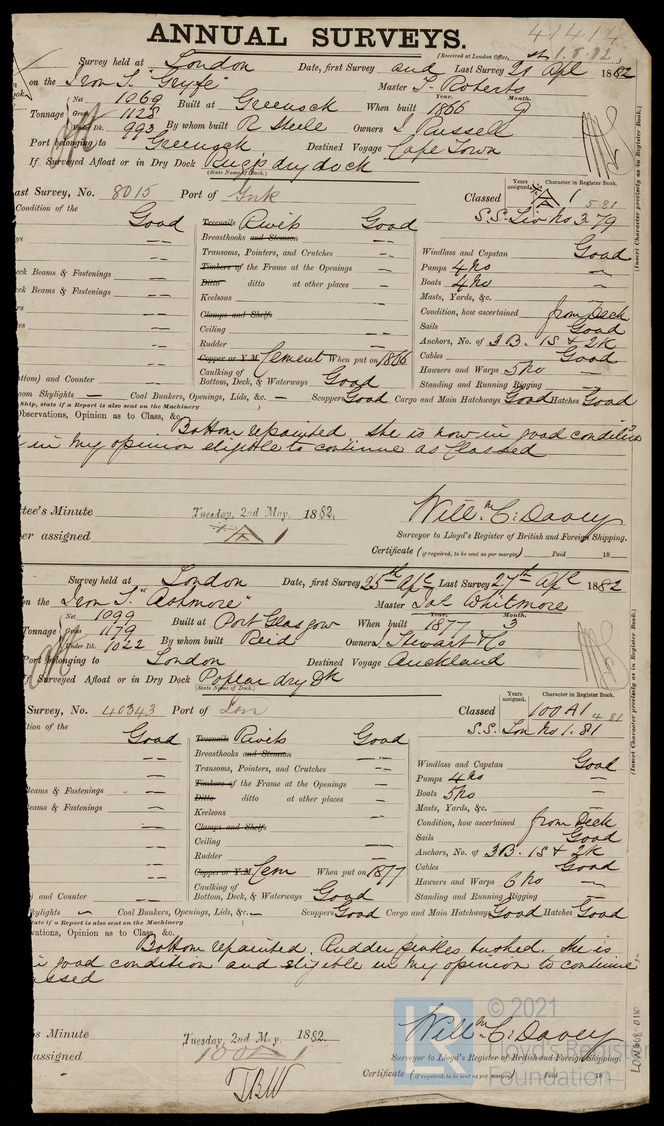 ANNUAL SURVEYS.
41414
(Received at London Office, 1.5.82,
Survey held at London Date, first Survey and Last Survey 21 Apl 1882
on the Iron S. "Gryfe" Master T. Roberts
Net 1069 Year. Month.
Tonnage Gross 1128 Built at Greenock When built 1866 9
Under Dk. 993 By whom built R Steele Owners J. Russell
Port belonging to Greenock Destined Voyage Cape Town
If Surveyed Afloat or in Dry Dock dry dock
(State Name of Dock.)
ast Survey, No. 8015 Port of Grnk Classed A 1 5.81
Years assigned. Character in Register Book.
(Insert Character precisely as in Register Book.)
S.S. No 3 79
Condition of the
Good Treenails Rivets Good
Breasthooks and Stemson
Transoms, Pointers, and Crutches
Timbers of the Frame at the Openings
Ditto ditto at other places
Keelsons
Clamps and Shelfs
Ceiling
Rudder
Copper or Y.M. Cement When put on 1866
Caulking of
Bottom, Deck, & Waterways Good
Windlass and Capstan Good
Pumps 4 No
Boats 4 No
Masts, Yards, &c.
Condition, how ascertained from Deck
Sails Good
Anchors, No. of 3B. 1S & 2K
Cables Good
Hawsers and Warps 5 No
Standing and Running Rigging
eck Beams & Fastenings
eck Beams & Fastenings
ttom) and Counter
oom Skylights Coal Bunkers, Openings, Lids, &c. Scuppers Good Cargo and Main Hatchways Good Hatches Good
Ship, state if a Report is also sent on the Machinery )
Observations, Opinion as to Class, &c.
Bottom repainted. She is now in good condition
in my opinion eligible to continue as Classed
tee's Minute Tuesday, 2nd May, 1882. Willm C. Davey
er assigned A 1 Surveyor to Lloyd's Register of British and Foreign Shipping.
Certificate (if required, to be sent as per margin) Paid 18
Survey held at London Date, first Survey 25th Apl Last Survey 27th Apl 1882
n the Iron S. "Ashmore" Master Jas Whitmore
Net 1099 Year. Month.
Tonnage Gross 1179 Built at Port Glasgow When built 1877 3
Under Dk. 1022 By whom built Reid Owners J. Stewart & Co
Port belonging to London Destined Voyage Auckland
f Surveyed Afloat or in Dry Dock Poplar dry Dk
(State Name of Dock.)
Survey, No. 40343 Port of Lon Classed 100 A1 4.81
Years assigned. Character in Register Book.
(Insert Character precisely as in Register Book.)
S.S. Lon No 1. 81
tion of the
Good Treenails Rivets Good
Breasthooks and Stemson
Transoms, Pointers, and Crutches
Timbers of the Frame at the Openings
Ditto ditto at other places
Keelsons
Clamps and Shelfs
Ceiling
Rudder
Copper or Y.M. Cem When put on 1877
Caulking of
Bottom, Deck, & Waterways Good
Windlass and Capstan Good
Pumps 4 No
Boats 5 No
Masts, Yards, &c.
Condition, how ascertained from Deck
Sails Good
Anchors, No. of 3B. 1S & 2K
Cables Good
Hawsers and Warps 6 No
Standing and Running Rigging
Beams & Fastenings
eams & Fastenings
) and Counter
kylights Coal Bunkers, Openings, Lids, &c. Scuppers Good Cargo and Main Hatchways Good Hatches Good
tate if a Report is also sent on the Machinery )
vations, Opinion as to Class, &c.
Bottom repainted. Rudder pintles bushed. She is
good condition and eligible in my opinion to continue
ssed
's Minute Tuesday, 2nd May, 1882. Willm C. Davey
assigned 100 A 1 Surveyor to Lloyd's Register of British and Foreign Shipping.
Certificate (if required, to be sent as per margin) Paid 18
TBW
LR
© 2021
Lloyd's Register
Foundation
LON668-0110